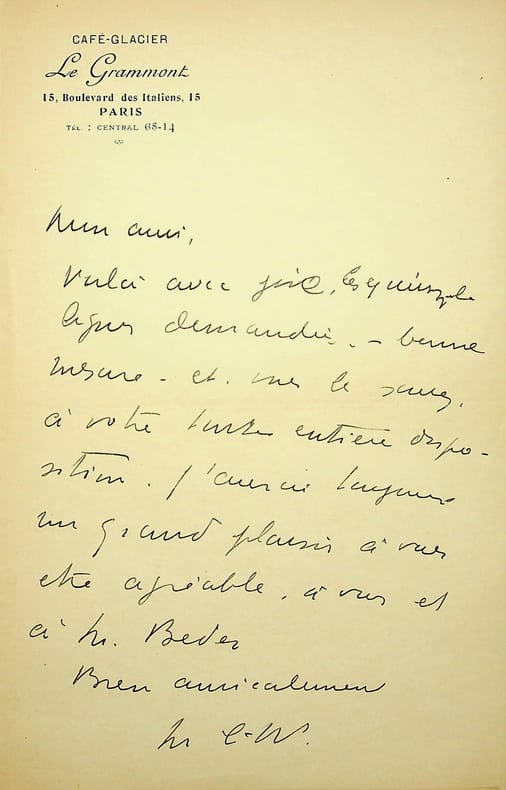 CAFÉ-GLACIER
Le Grammont
15, Boulevard des Italiens, 15
PARIS
TÉL : CENTRAL 65-14
Mon ami,
Voilà avec joie, les quinze
lignes demandées. – bonne
mesure – et. vous le savez,
à votre toute entière dispo-
sition. J'aurai toujours
un grand plaisir à vous
etre agréable, à vous et
à M.
Bien amicalement